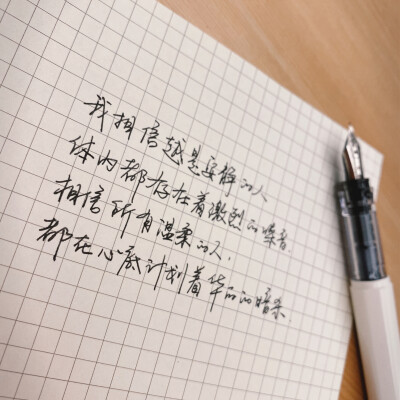 我相信越是安静的人
体内都存在着激烈的嗓音
相信所有温柔的人,
都在心底计划着华丽的暗杀.